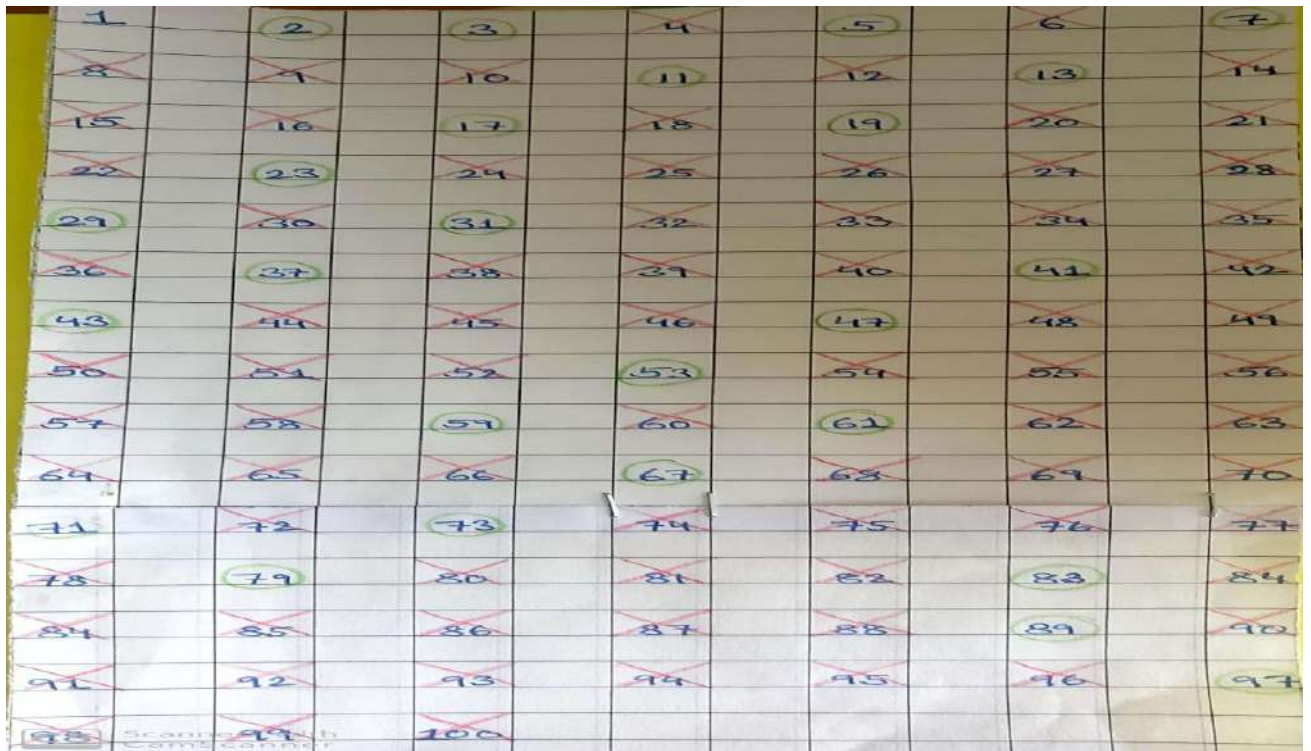 1 2 3 4 5 6 7
8 9 10 11 12 13 14
15 16 17 18 19 20 21
22 23 24 25 26 27 28
29 30 31 32 33 34 35
36 37 38 39 40 41 42
43 44 45 46 47 48 49
50 51 52 53 54 55 56
57 58 59 60 61 62 63
64 65 66 67 68 69 70
71 72 73 74 75 76 77
78 79 80 81 82 83 84
84 85 86 87 88 89 90
91 92 93 94 95 96 97
98 99 100
Scanned with
CamScanner